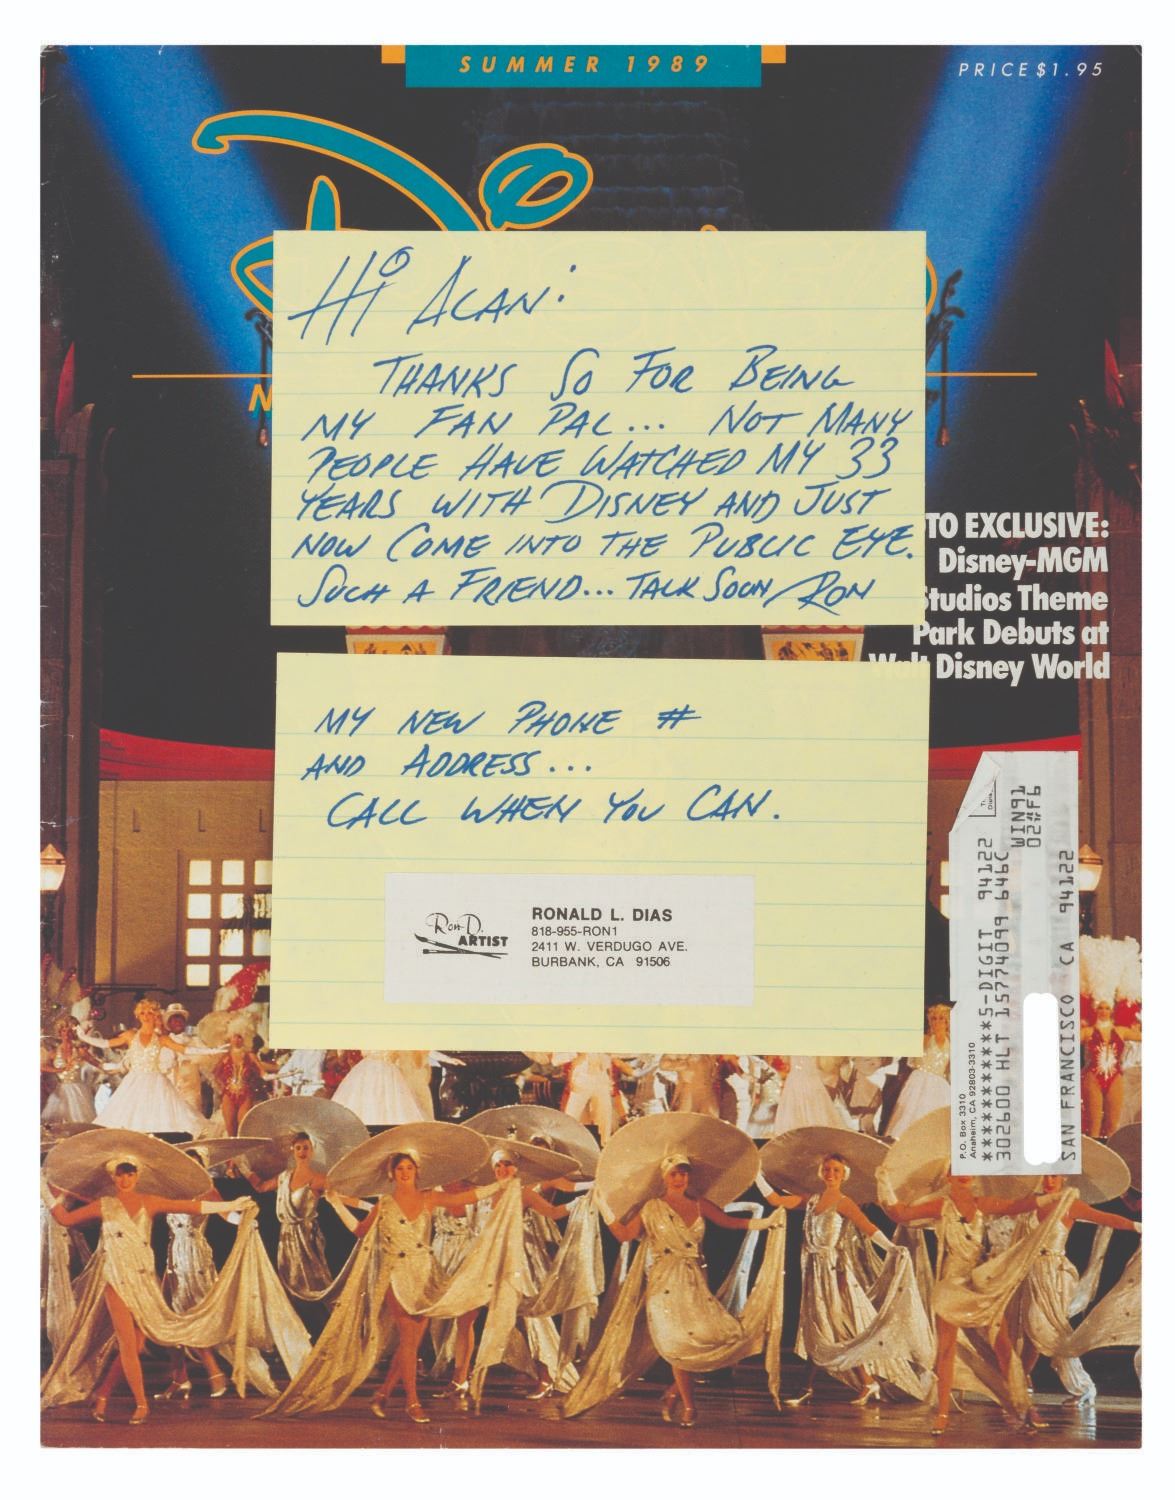 SUMMER 1989
PRICE $1.95
Hi ALAN:
THANKS SO FOR BEING
MY FAN PAL... NOT MANY
PEOPLE HAVE WATCHED MY 33
YEARS WITH DISNEY AND JUST
NOW COME INTO THE PUBLIC EYE.
SUCH A FRIEND... TALK SOON RON
TO EXCLUSIVE:
Disney-MGM
Studios Theme
Park Debuts at
Walt Disney World
MY NEW PHONE #
AND ADDRESS...
CALL WHEN YOU CAN.
Ron D.
ARTIST
RONALD L. DIAS
818-955-RON1
2411 W. VERDUGO AVE.
BURBANK, CA 91506
P.O. Box 3310
Anaheim, CA 92803-3310
***********5-DIGIT 94122
302600 HLT 15774099 646C
WIN91
02#F6
SAN FRANCISCO CA 94122